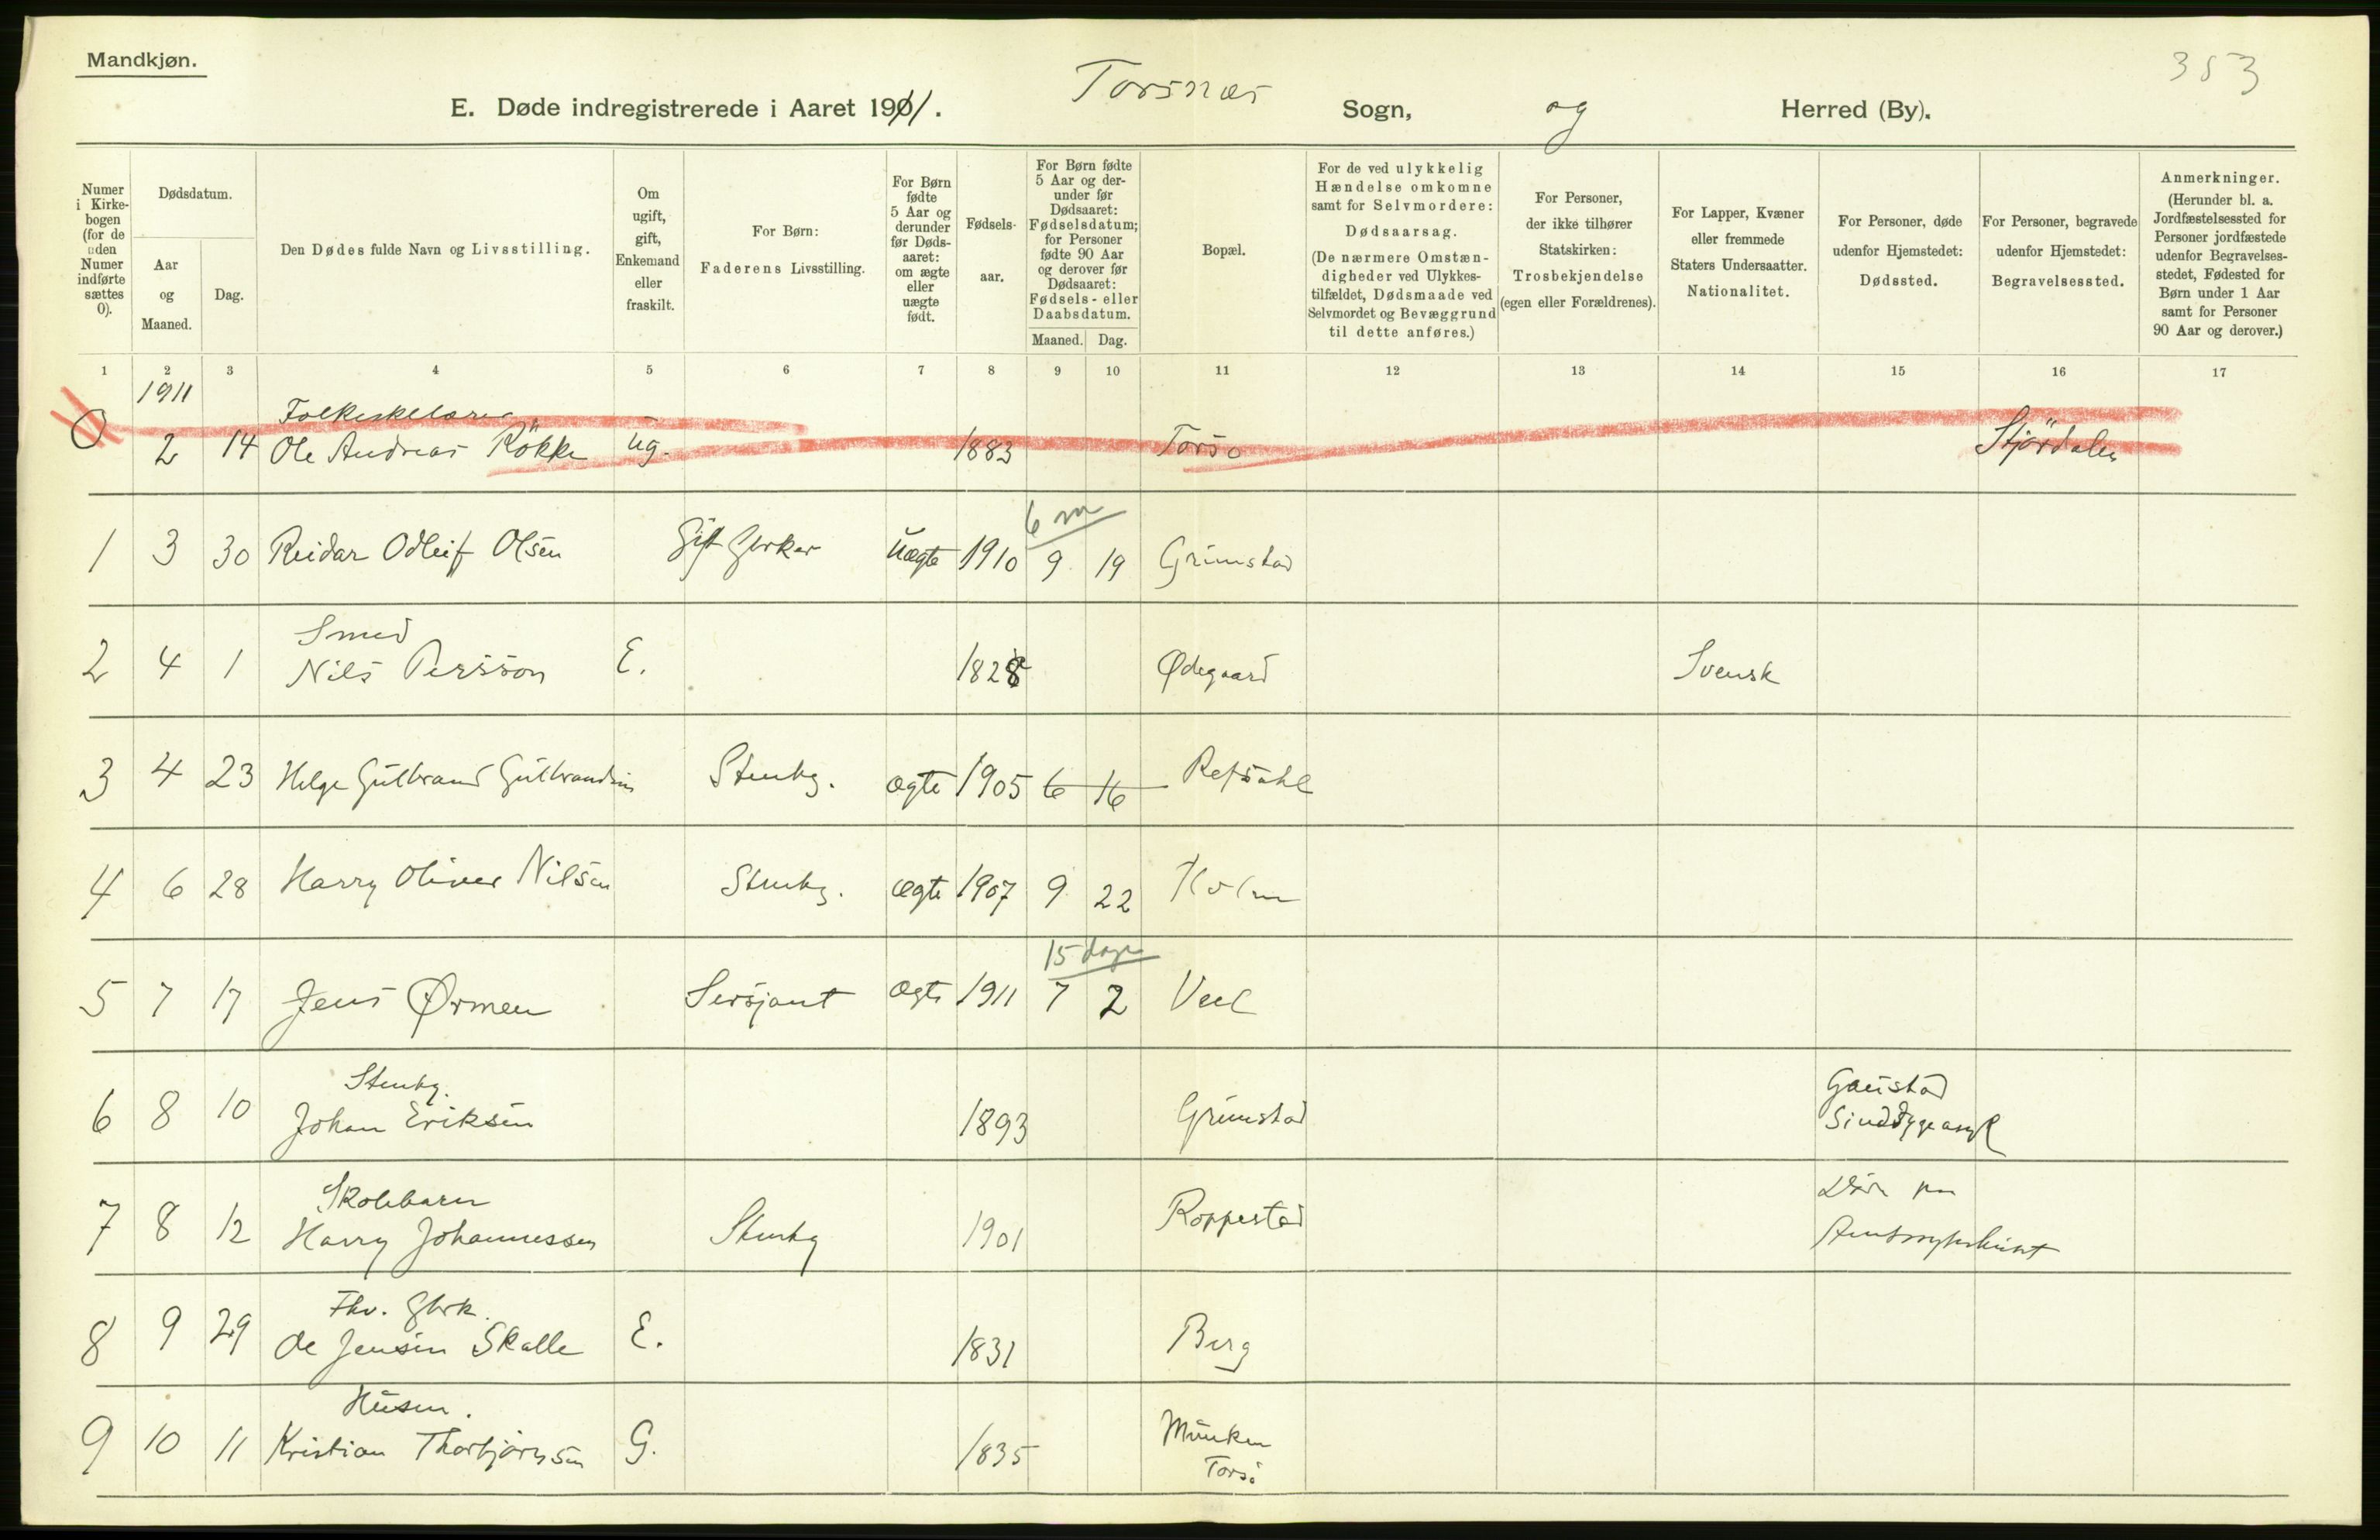 Mandkjøn.
353
E. Døde indregistrerede i Aaret 1911. Torsnæs Sogn, og Herred (By).
Numer i Kirkebogen (for de uden Numer indførte sættes 0).
Dødsdatum.
Aar og Maaned.
Dag.
Den Dødes fulde Navn og Livsstilling.
Om ugift, gift, Enkemand eller fraskilt.
For Børn: Faderens Livsstilling.
For Børn fødte 5 Aar og derunder før Dødsaaret: om ægte eller uægte født.
Fødselsaar.
For Børn fødte 5 Aar og derunder før Dødsaaret: Fødselsdatum; for Personer fødte 90 Aar og derover før Dødsaaret: Fødsels- eller Daabsdatum.
Maaned. Dag.
Bopæl.
For de ved ulykkelig Hændelse omkomne samt for Selvmordere: Dødsaarsag. (De nærmere Omstændigheder ved Ulykkestilfældet, Dødsmaade ved Selvmordet og Bevæggrund til dette anføres.)
For Personer, der ikke tilhører Statskirken: Trosbekjendelse (egen eller Forældrenes).
For Lapper, Kvæner eller fremmede Staters Undersaatter. Nationalitet.
For Personer, døde udenfor Hjemstedet: Dødssted.
For Personer, begravede udenfor Hjemstedet: Begravelsessted.
Anmerkninger. (Herunder bl. a. Jordfæstelsessted for Personer jordfæstede udenfor Begravelsesstedet, Fødested for Børn under 1 Aar samt for Personer 90 Aar og derover.)
1 2 3 4 5 6 7 8 9 10 11 12 13 14 15 16 17
1911
0 2 14 Ole Andreas Røkke ug. 1883 Torsø Stjørdalen
6 m
1 3 30 Reidar Odleif Olsen Gift Gbrker uægte 1910 9 19 Grimstad
Smed
2 4 1 Nils Persson E. 1828 Ødegaard Svensk
3 4 23 Helge Gulbrand Gulbrandsen Stenhg. ægte 1905 6 16 Refsahl
4 6 28 Harry Oliver Nilsen Stenhg. ægte 1907 9 22 Holm
15 dage
5 7 17 Jens Ørmen Sersjant ægte 1911 7 2 Veel
Stenhg. Gaustad
6 8 10 Johan Eriksen 1893 Grimstad Sindsygeasyl
Skolebarn
7 8 12 Harry Johannessen Stenhg 1901 Roppestad Amtssykehuset
Fhv. Gbrk.
8 9 29 Ole Jensen Skalle E. 1831 Berg
Husm.
9 10 11 Kristian Thorbjørnsen G. 1835 Munken
Torsø